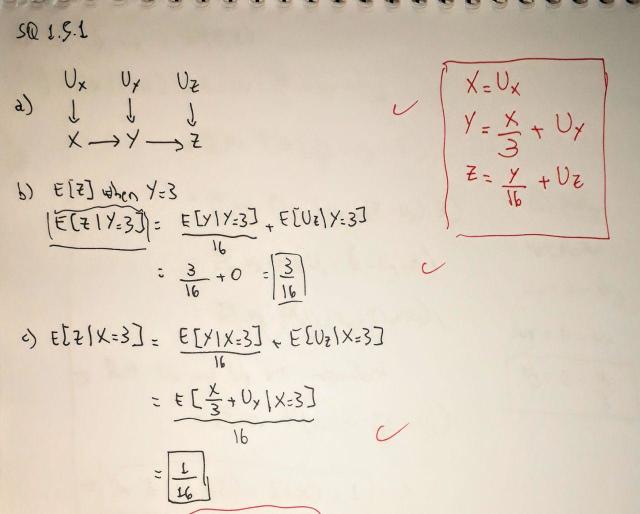 SQ 1.5.1
a) Ux Uy Uz
↓ ↓ ↓
X → Y → Z
X = Ux
Y = X/3 + Uy
Z = Y/16 + Uz
b) E[Z] when Y=3
E[Z|Y=3] = E[Y|Y=3]/16 + E[Uz|Y=3]
= 3/16 + 0 = 3/16
c) E[Z|X=3] = E[Y|X=3]/16 + E[Uz|X=3]
= E[X/3 + Uy|X=3]/16
= 1/16